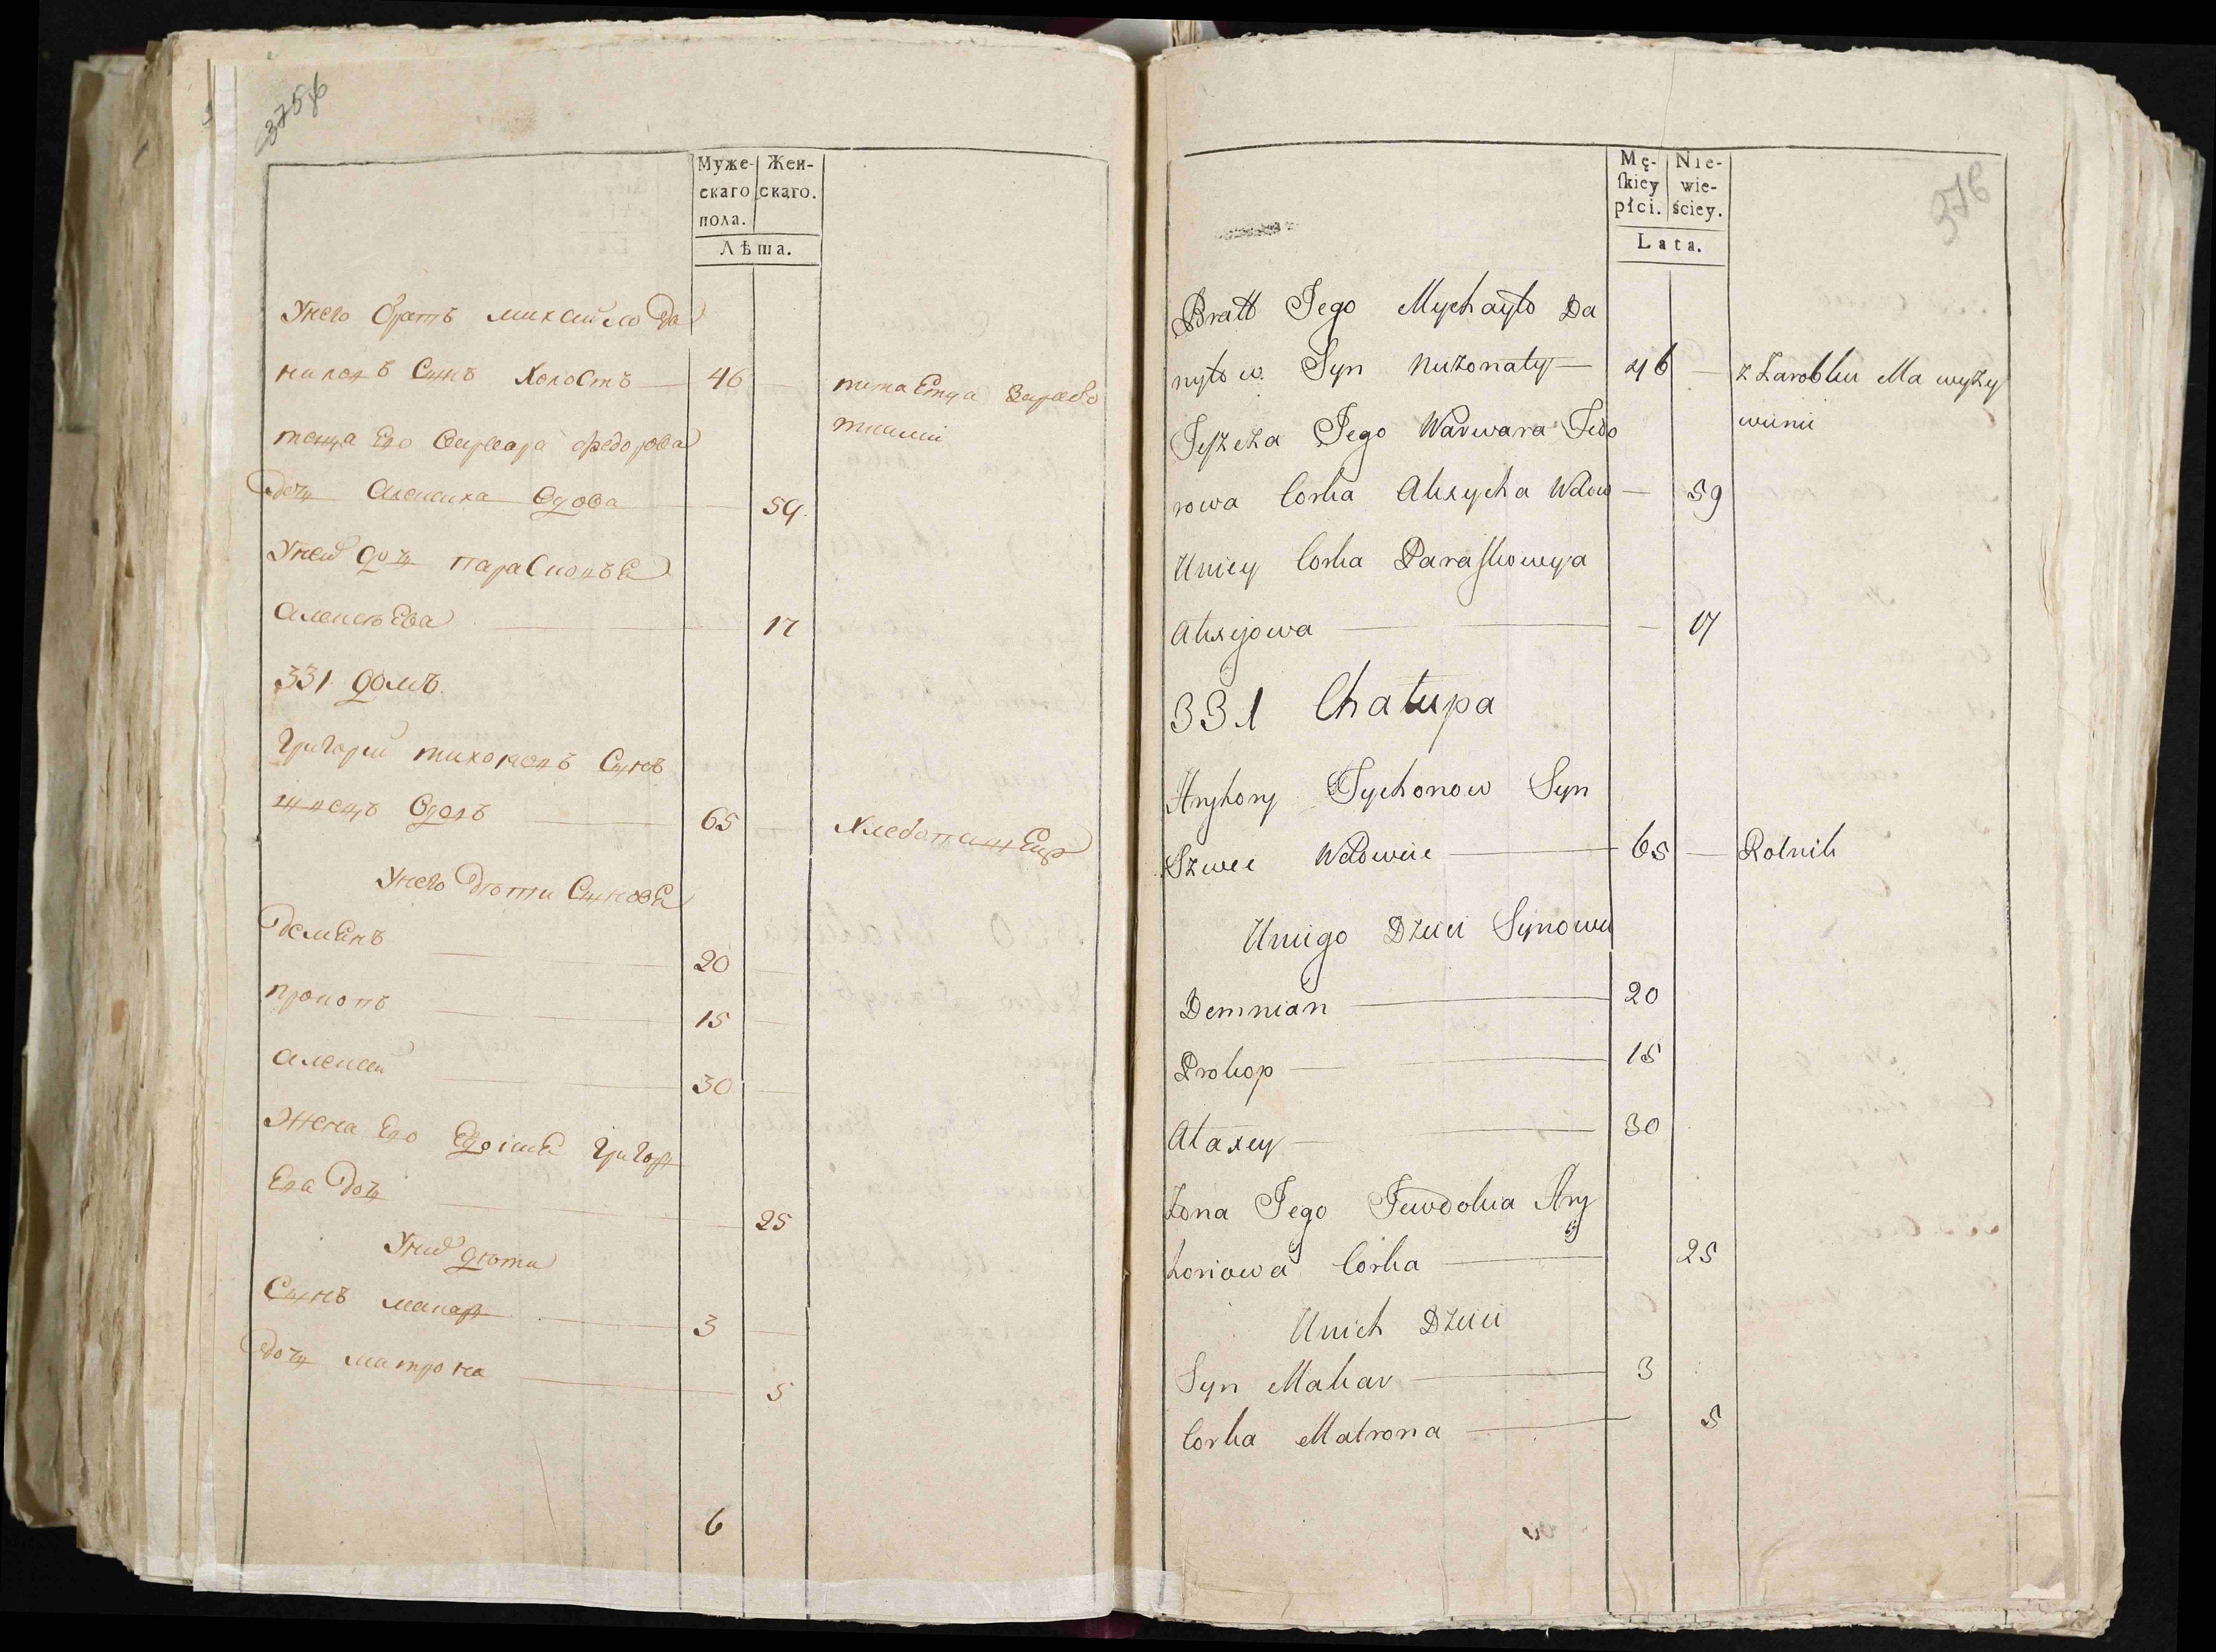 375б
Муже- Жен-
скаго скаго.
пола.
Лѣта.
Унего братъ михайло Да
ниловъ Сынъ холостъ 46 питаЕтца Зарабо
теща Его Варвара федорова тками
дочь Алексиха вдова 59
Уней дочь параСковъЕя
АлексѣЕва 17
331 домъ
Григорий тихоновъ Сынъ
швецъ вдовъ 65 хлебопашЕцъ
Унего дѣти СыновЕя
ДемЕнъ 20
прокопъ 15
алексей 30
Жена Его Евдокия Григорь
Ева дочь 25
Уних дѣти
Сынъ макаръ 3
дочь матрона 5
6
376
Mę- Nie-
ſkiey wie-
płci. ściey.
Lata.
Bratt Jego Mychayło Da
nyłow Syn Nieżonaty 46 z Zarobku Ma wyży
Teszcza Jego Warwara Fedo wienie
rowa Corka Alexycha Wdow 59
Uniey Corka Paraskowya
Alexejowa 17
331 Chałupa
Hryhory Tychonow Syn
Szwec Wdowiec 65 Rolnik
Uniego Dzieci Synowie
Demnian 20
Prokop 15
Alaxey 30
Żona Jego Jewdokia Hry
horiowa Corka 25
Unich Dzieci
Syn Makar 3
Corka Matrona 5